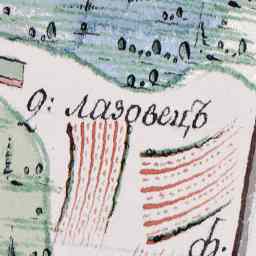 Q: лазовецъ
ф.